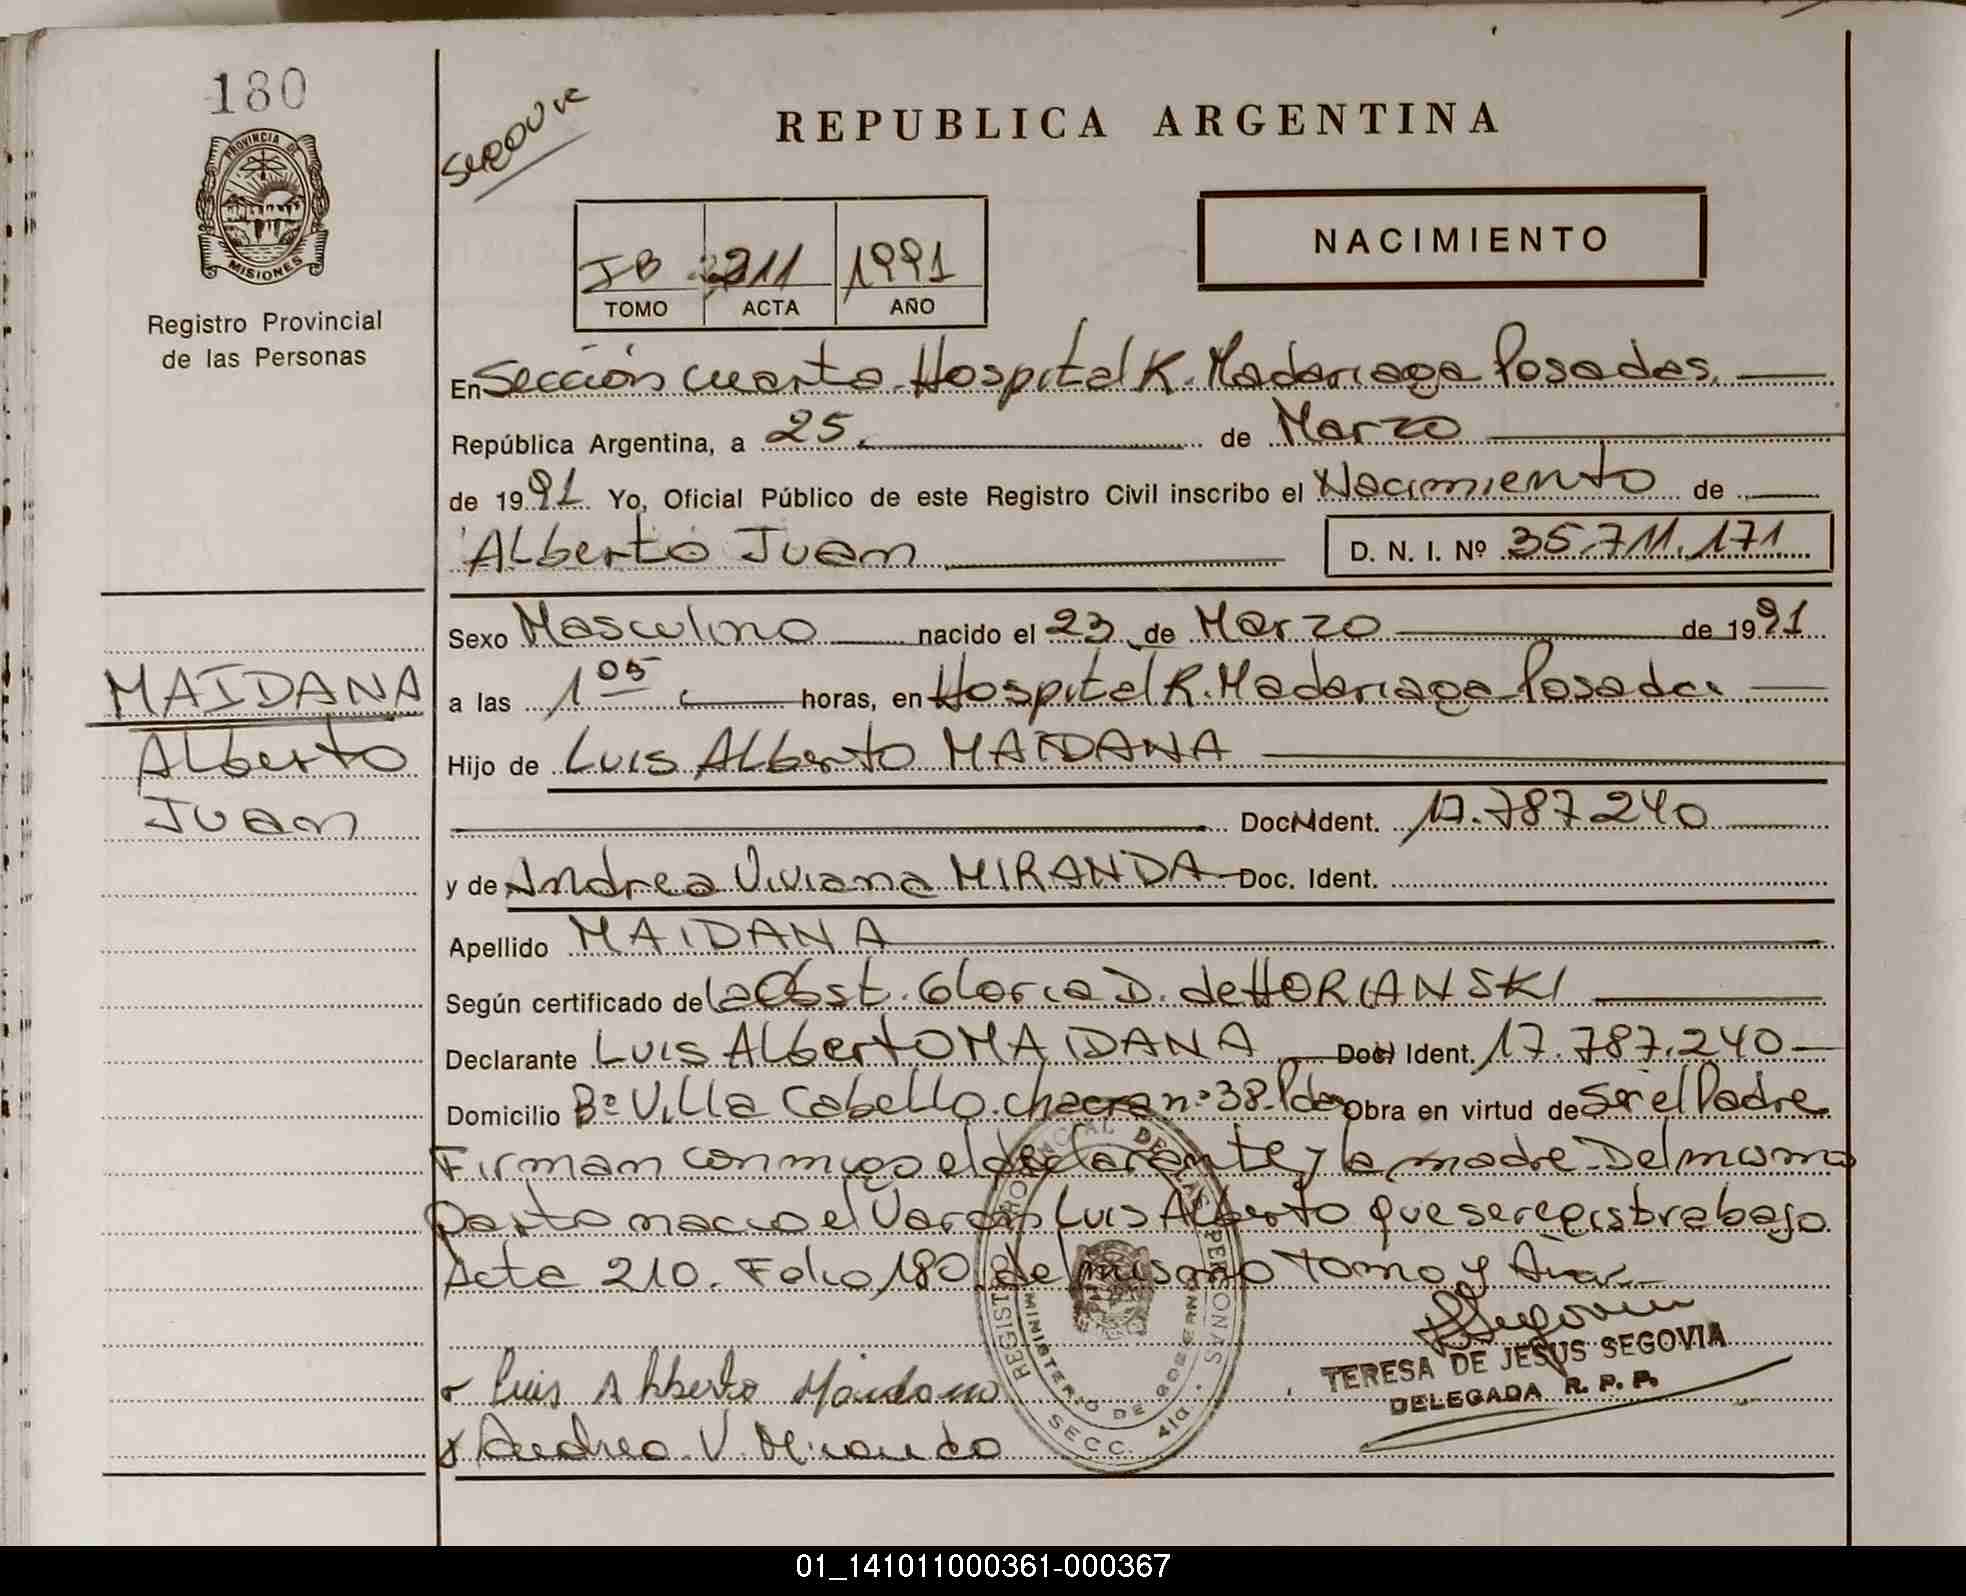 180
PROVINCIA DE
MISIONES
Registro Provincial
de las Personas
REPUBLICA ARGENTINA
NACIMIENTO
JB 211 1991
TOMO ACTA AÑO
En Sección cuarta. Hospital R. Madariaga Posadas.
República Argentina, a 25. de Marzo
de 1991 Yo, Oficial Público de este Registro Civil inscribo el Nacimiento de
Alberto Juan D. N. I. Nº 35.711.171
Sexo Masculino nacido el 23 de Marzo de 1991
a las 1 05 horas, en Hospital R. Madariaga Posadas
MAIDANA
Alberto
Juan
Hijo de Luis Alberto MAIDANA
Doc. Ident. 17.787.240
y de Andrea Viviana MIRANDA Doc. Ident.
Apellido MAIDANA
Según certificado de la Obst. Gloria D. de HORIANSKI
Declarante Luis Alberto MAIDANA Doc. Ident. 17.787.240
Domicilio Bº Villa Cabello. chacra nº 38. Pdas Obra en virtud de Ser el Padre
Firman conmigo el declarante y la madre. Del mismo
parto nacio el Varon Luis Alberto que se registra bajo
Acta 210. Folio 180. del mismo Tomo y Año.
Luis Alberto Maidana
x Andrea V. Miranda
TERESA DE JESUS SEGOVIA
DELEGADA R. P. P.
REGISTRO PROVINCIAL DE LAS PERSONAS
MINISTERIO DE GOBIERNO
SECC. 4ta.
01_141011000361-000367